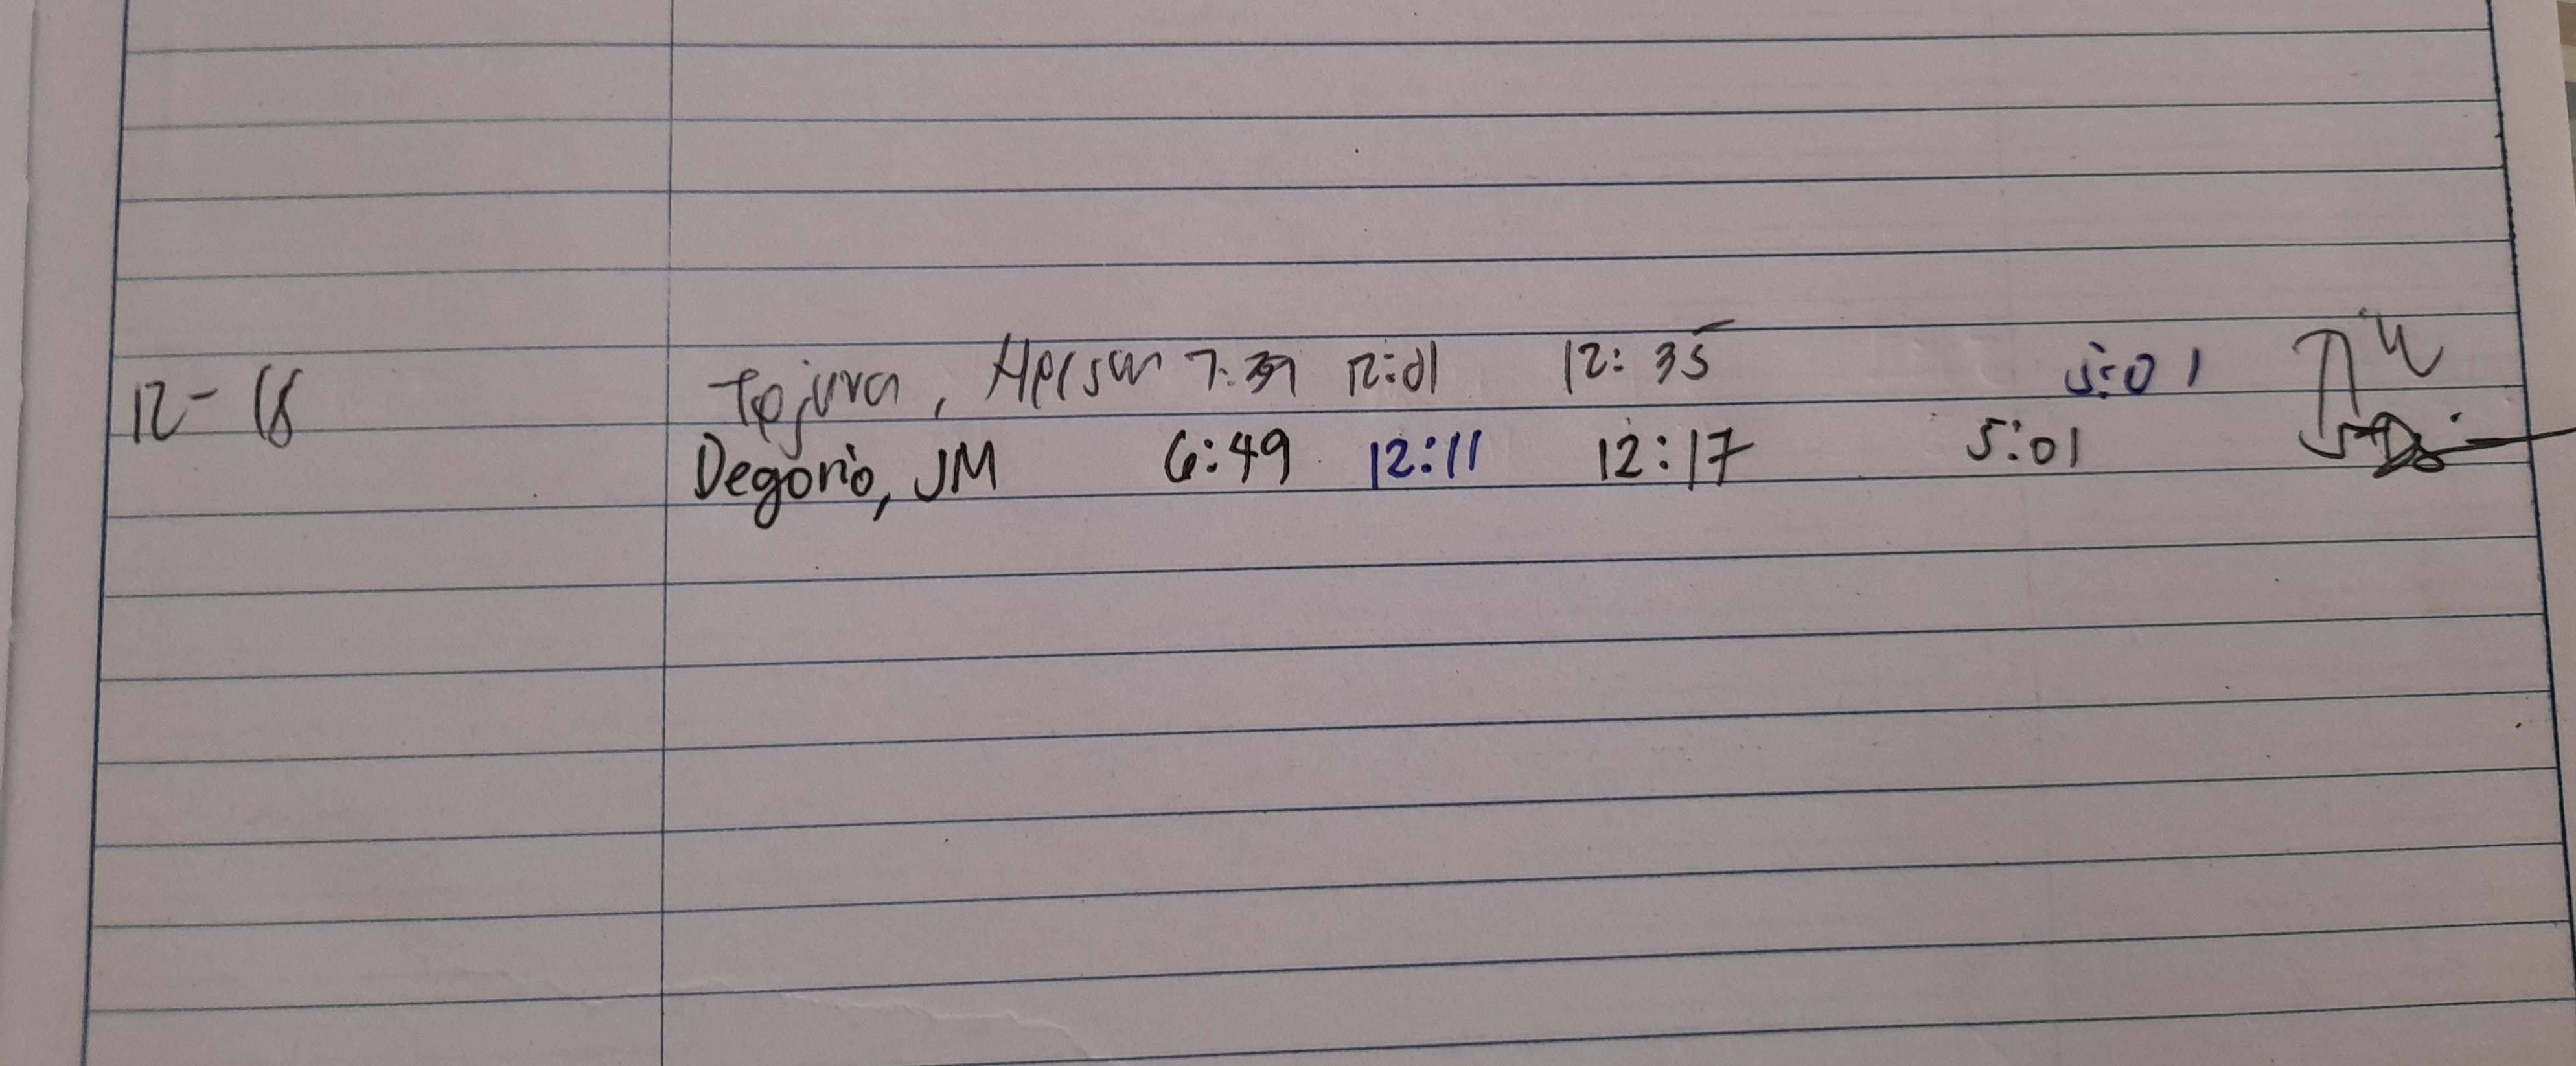 12-18 Tejura, Herson 7:39 12:01 12:35 5:01
Degorio, JM 6:49 12:11 12:17 5:01